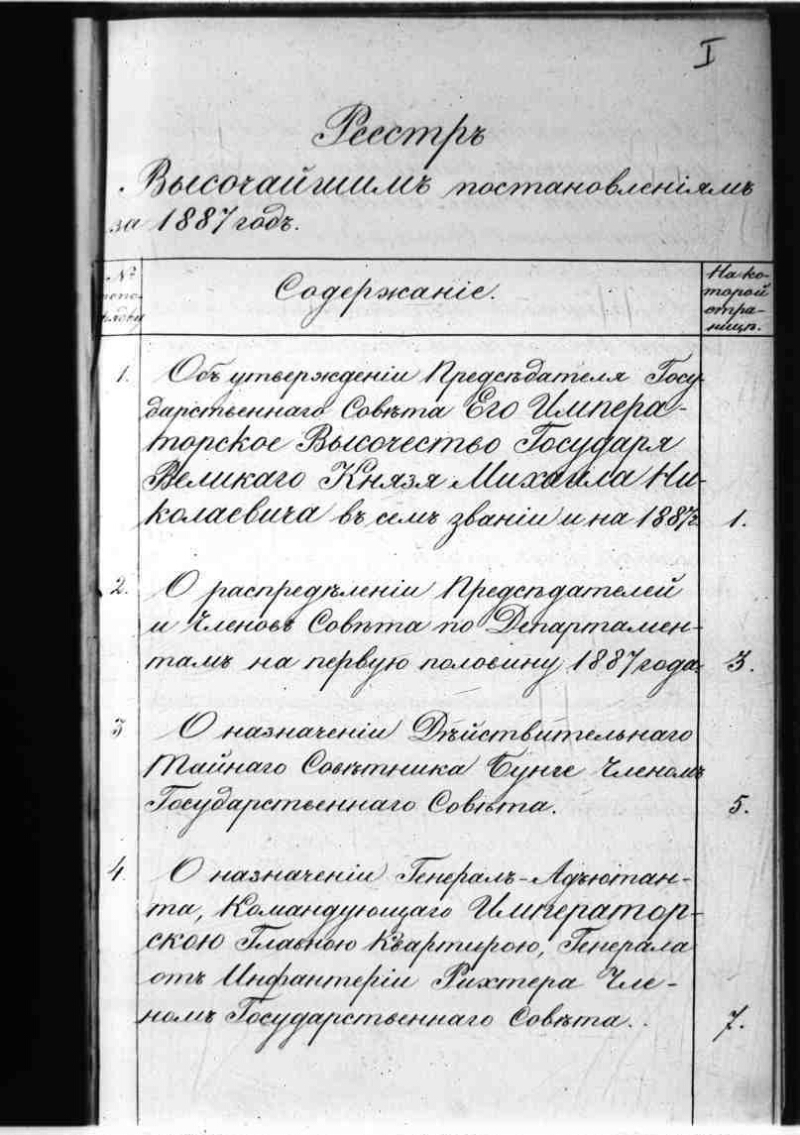 I
Реестръ
Высочайшимъ постановленіямъ
за 1887 годъ.
№
Содержаніе.
На ко-
торой
стра-
ницѣ.
1. Объ утвержденіи Предсѣдателя Госу-
дарственнаго Совѣта Его Импера-
торское Высочество Государя
Великаго Князя Михаила Ни-
колаевича въ семъ званіи и на 1887 г. 1.
2. О распредѣленіи Предсѣдателей
и Членовъ Совѣта по Департамен-
тамъ на первую половину 1887 года. 3.
3 О назначеніи Дѣйствительнаго
Тайнаго Совѣтника Бунге Членомъ
Государственнаго Совѣта. 5.
4. О назначеніи Генералъ-Адъютан-
та, Командующаго Император-
скою Главною Квартирою, Генерала
отъ Инфантеріи Рихтера Чле-
номъ Государственнаго Совѣта. 7.